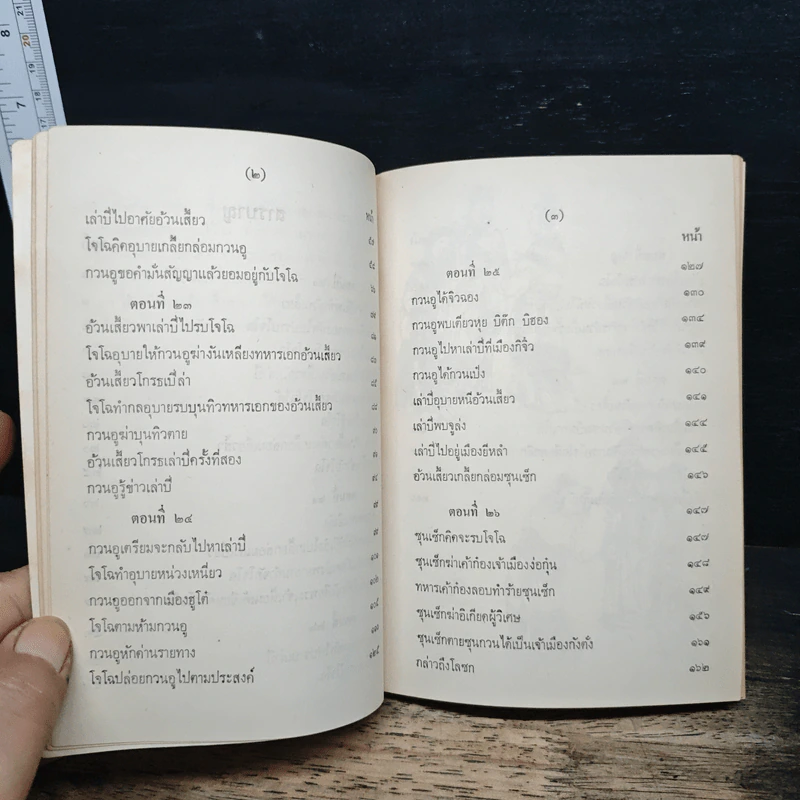 (๒)
หน้า
เล่าปี่ไปอาศัยอ้วนเสี้ยว
โจโฉคิดอุบายเกลี้ยกล่อมกวนอู
กวนอูขอคำมั่นสัญญาแล้วยอมอยู่กับโจโฉ
ตอนที่ ๒๓
อ้วนเสี้ยวพาเล่าปี่ไปรบโจโฉ
โจโฉอุบายให้กวนอูฆ่างันเหลียงทหารเอกอ้วนเสี้ยว
อ้วนเสี้ยวโกรธเปีล่า
โจโฉทำกลอุบายรบบุนทิวทหารเอกของอ้วนเสี้ยว
กวนอูฆ่าบุนทิวตาย
อ้วนเสี้ยวโกรธเล่าปี่ครั้งที่สอง
กวนอูรู้ข่าวเล่าปี่
ตอนที่ ๒๔
กวนอูเตรียมจะกลับไปหาเล่าปี่
โจโฉทำอุบายหน่วงเหนี่ยว
กวนอูออกจากเมืองฮูโต๋
โจโฉตามห้ามกวนอู
กวนอูหักด่านรายทาง
โจโฉปล่อยกวนอูไปตามประสงค์
(๓)
หน้า
ตอนที่ ๒๕ ๑๒๗
กวนอูได้จิวฉอง ๑๓๐
กวนอูพบเตียวหุย บิต๊ก บิฮอง ๑๓๔
กวนอูไปหาเล่าปี่ที่เมืองกิจิ๋ว ๑๓๙
กวนอูได้กวนเป๋ง ๑๔๐
เล่าปี่อุบายหนีอ้วนเสี้ยว ๑๔๑
เล่าปี่พบจูล่ง ๑๔๔
เล่าปี่ไปอยู่เมืองยีหลำ ๑๔๕
อ้วนเสี้ยวเกลี้ยกล่อมซุนเซ็ก ๑๔๖
ตอนที่ ๒๖ ๑๔๗
ซุนเซ็กคิดจะรบโจโฉ ๑๔๗
ซุนเซ็กฆ่าเค้าก๋องเจ้าเมืองง่อกุ๋น ๑๔๘
ทหารเค้าก๋องลอบทำร้ายซุนเซ็ก ๑๔๙
ซุนเซ็กฆ่าอิเกียดผู้วิเศษ ๑๕๖
ซุนเซ็กตายซุนกวนได้เป็นเจ้าเมืองกังตั๋ง ๑๖๑
กล่าวถึงโลซก ๑๖๒